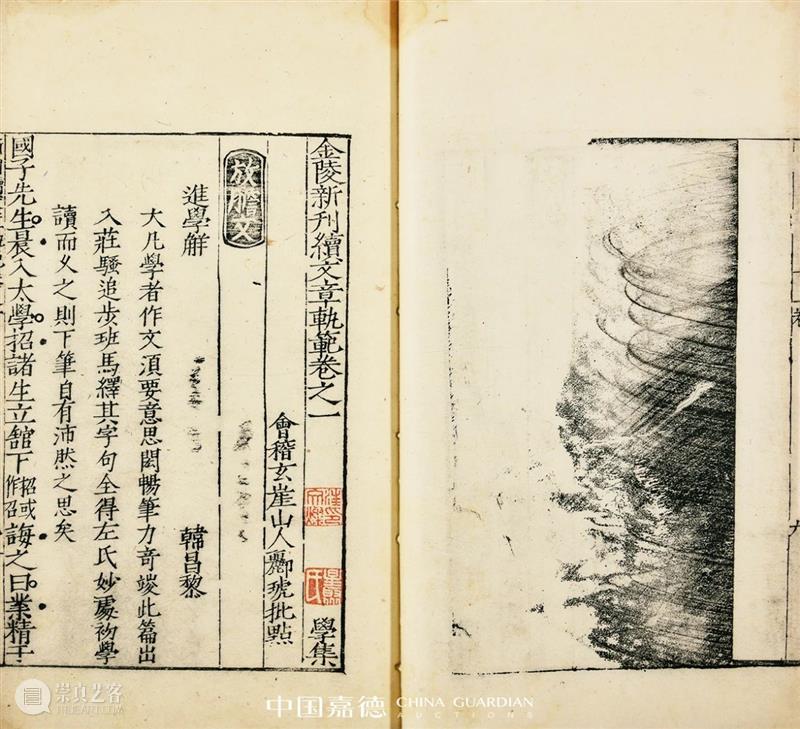 金陵新刊續文章軌範卷之一
學集
會稽玄崖山人酈琥批點
放膽文
進學解
韓昌黎
大凡學者作文須要意思閎暢筆力奇竣此篇出
入莊騷追步班馬繹其字句全得左氏妙處初學
讀而乂之則下筆自有沛然之思矣
國子先生晨入太學招諸生立舘下招或作召誨之曰業精于
卷
九
崇真艺客
中国嘉德 CHINA GUARDIAN
AUCTIONS